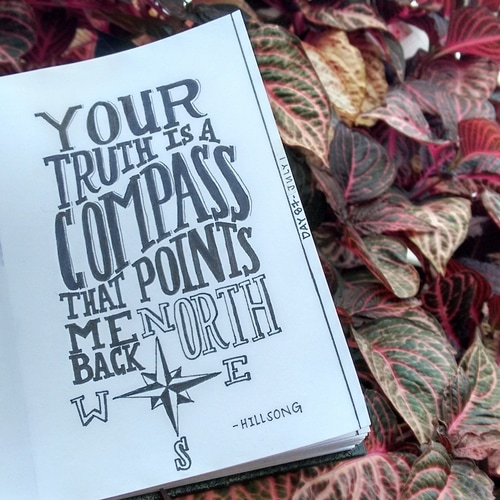 YOUR
TRUTH IS A
COMPASS
THAT POINTS
ME NORTH
BACK
W E
S
-HILLSONG
DAY 87. JULY 1